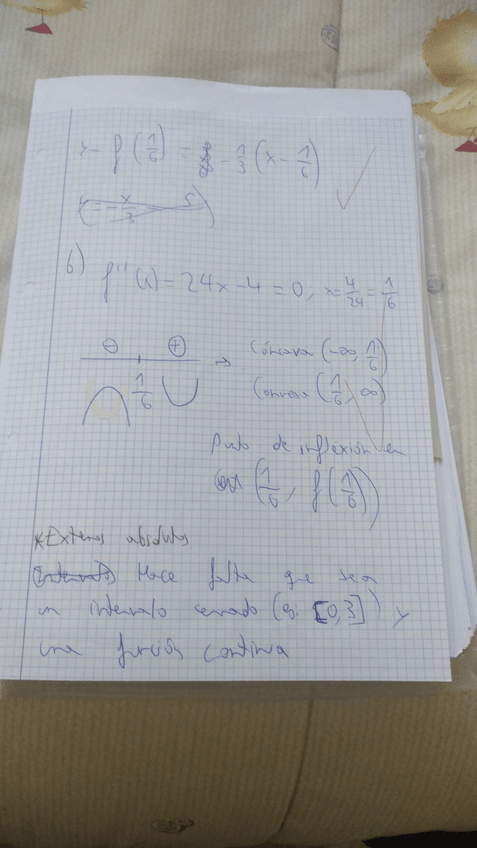 y - f(1/6) = - 1/3 (x - 1/6)
b) f''(x) = 24x - 4 = 0, x = 4/24 = 1/6
⊖ ⊕ → Cóncava (-∞, 1/6)
1/6 Convexa (1/6, ∞)
Punto de inflexión en
(1/6, f(1/6))
*Extremos absolutos
Hace falta que sea
un intervalo cerrado (ej. [0,3]) y
una función continua